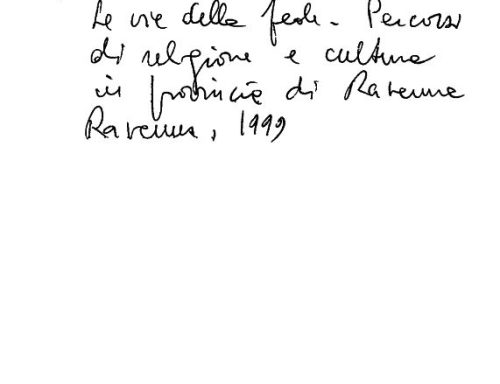 Le vie della fede - Percorsi
di religione e cultura
in provincia di Ravenna
Ravenna, 1999